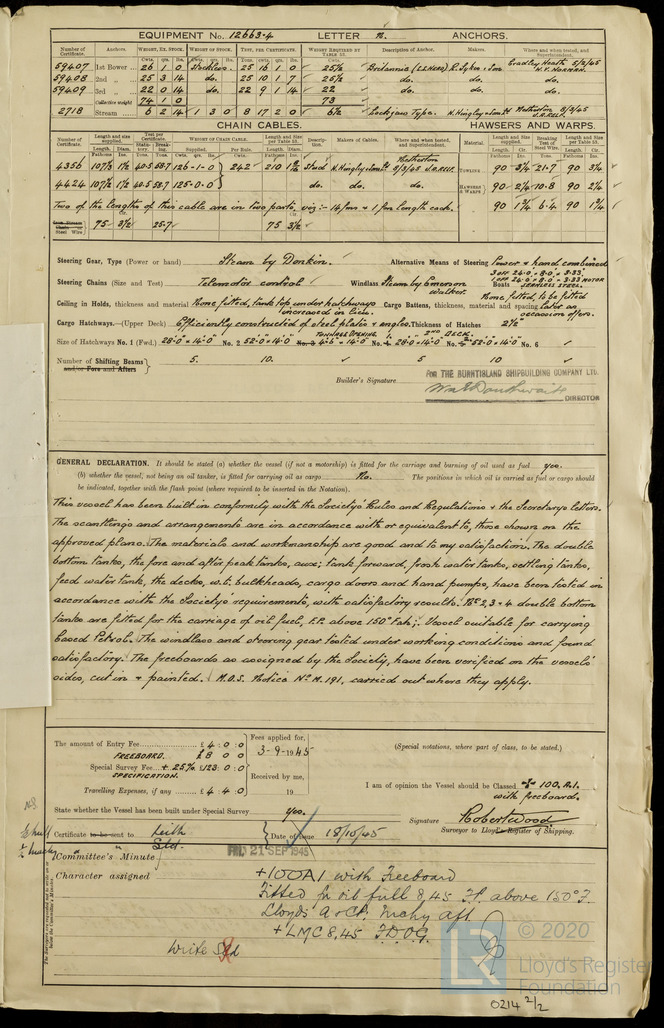 EQUIPMENT No. 12663.4 LETTER n. ANCHORS.
Number of Certificate. Anchors. WEIGHT, EX. STOCK. WEIGHT OF STOCK. TEST, PER CERTIFICATE. WEIGHT REQUIRED BY TABLE 53. Description of Anchor. Makers. Where and when tested, and Superintendent.
Cwts. qrs. lbs. Cwts. qrs. lbs. Tons. cwts. qrs. lbs. Cwts.
59407 1st Bower 26 1 0 Stockless. 25 16 1 0 25½ Britannia R. Sykes & Son Bradley Heath 5/2/45
59408 2nd „ 25 3 14 do. 25 10 1 7 25½ do. do. do.
59409 3rd „ 22 0 14 do. 22 9 1 14 22 do. do. do.
Collective weight 74 1 0 73
2718 Stream 6 2 14 1 3 0 8 17 2 0 6½ Lockjaw Type. N. Hingley & Sons Ld Netherton 8/2/45
CHAIN CABLES. HAWSERS AND WARPS.
Number of Certificate. Length and size supplied. Test per Certificate. WEIGHT OF CHAIN CABLE. Length and Size per Table 53. Description. Makers of Cables. Where and when tested, and Superintendent. Material. Length and size supplied. Breaking Test of Steel Wire. Length and Size per Table 53.
Fathoms Diam. Supplied. Per Rule. Length. Diam. Fathoms Inc. Tons. Fathoms Inc.
4356 107½ 1½ 40.5 58.7 126-1-0 242 210 Stud N. Hingley & Sons Ld Netherton 8/3/45 TOWLINE 90 3¼ 21.7 90 3¼
4424 107½ 1½ 40.5 58.7 125-0-0 do. do. do. HAWSERS & WARPS 90 2¼ 10.8 90 2¼
Two of the lengths of this cable are in two parts, viz:- 14 fms & 1 fm length each. 90 1¾ 6.4 90 1¾
Steel Wire 75 3½ 25.7 75 3½
Steering Gear, Type (Power or hand) Steam by Donkin. Alternative Means of Steering Power & hand combined
Steering Chains (Size and Test) Telemotor control Windlass Steam by Emerson Walker Boats 3 off 24.0 × 8.0 × 3.33' 1 off 24.0 × 8.0 × 3.33 MOTOR SEAMLESS STEEL.
Ceiling in Holds, thickness and material None fitted, tank top under hatchways increased in lieu. Cargo Battens, thickness, material and spacing None fitted, to be fitted later as occasion offers.
Cargo Hatchways.—(Upper Deck) Efficiently constructed of steel plates & angles. Thickness of Hatches 2½"
Size of Hatchways No. 1 (Fwd.) 28'0" × 14'0" No. 2 52'0" × 14'0" No. 3 TONNAGE OPENING 4'6" × 14'0" 2ND DECK. No. 1 28'0" × 14'0" No. 2 52'0" × 14'0" No. 6
Number of Shifting Beams and/or Fore and Afters 5. 10. 5 10
Builder's Signature FOR THE BURNTISLAND SHIPBUILDING COMPANY LTD.
DIRECTOR
GENERAL DECLARATION. It should be stated (a) whether the vessel (if not a motorship) is fitted for the carriage and burning of oil used as fuel yes.
(b) whether the vessel, not being an oil tanker, is fitted for carrying oil as cargo No. The positions in which oil is carried as fuel or cargo should
be indicated, together with the flash point (where required to be inserted in the Notation).
This vessel has been built in conformity with the Society's Rules and Regulations & the Secretary's letters.
The scantlings and arrangements are in accordance with or equivalent to, those shown on the
approved plans. The materials and workmanship are good and to my satisfaction. The double
bottom tanks, the fore and after peak tanks, aux: tank forward, fresh water tanks, settling tanks,
feed water tank, the decks, w.t. bulkheads, cargo doors and hand pumps, have been tested in
accordance with the Society's requirements, with satisfactory results. Nos 2, 3 & 4 double bottom
tanks are fitted for the carriage of oil fuel, F.P. above 150° Fah; Vessel suitable for carrying
cased Petrol. The windlass and steering gear tested under working conditions and found
satisfactory. The freeboards as assigned by the Society, have been verified on the vessels'
sides, cut in & painted. M.O.S. Notice No M.191, carried out where they apply.
The amount of Entry Fee £ 4 : 0 : 0
FREEBOARD. £ 8 0 0
Special Survey Fee + 25% £123 : 0 : 0
SPECIFICATION.
Travelling Expenses, if any £ 4 4 : 0
Fees applied for, 3-9-1945
Received by me, 19
(Special notations, where part of class, to be stated.)
I am of opinion the Vessel should be Classed +100. A.1. with freeboard.
State whether the Vessel has been built under Special Survey Yes.
Signature Robert Wood
Surveyor to Lloyd's Register of Shipping.
Certificate to be sent to Leith Sld. Date of issue 18/10/45
FRI. 21 SEP 1945
Committee's Minute
Character assigned +100A1 with Freeboard
Fitted for oil fuel 8,45 F.P. above 150° F.
Lloyds A & CP. Mchy aft.
+LMC 8,45 F.D. O.G.
Write Sld
© 2020
LR
Lloyd's Register
Foundation
0214 2/2